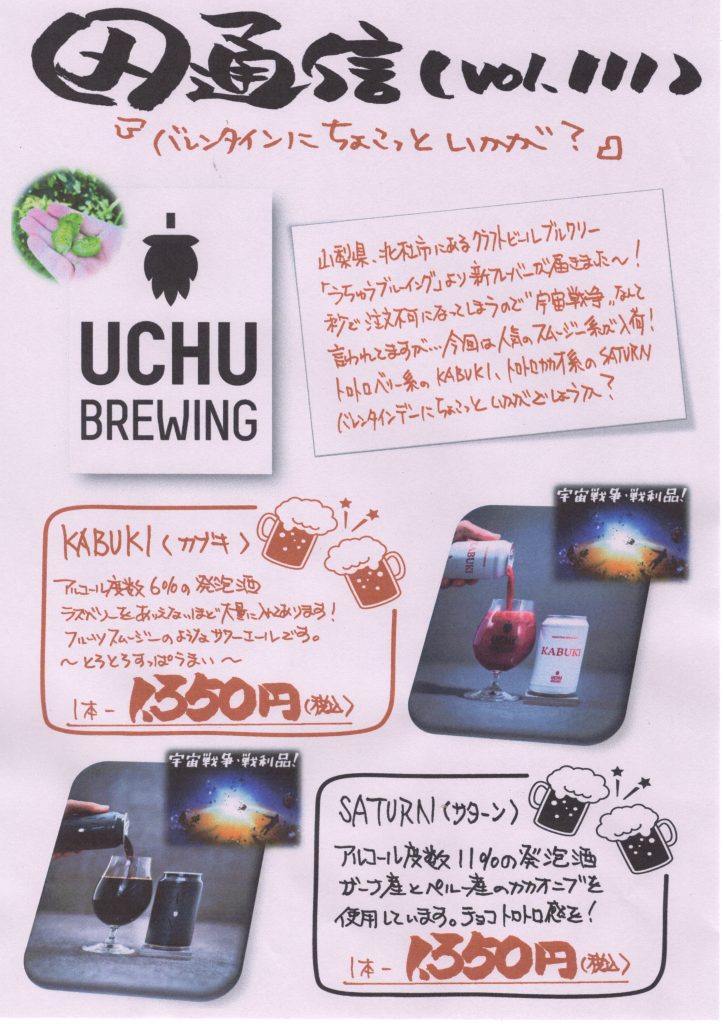 通信(vol.111)
『バレンタインにちょこっといかが？』
UCHU
BREWING
山梨県、北杜市にあるクラフトビールブルワリー
「うちゅうブルーイング」より新フレーバーが届きました〜！
秒で注文不可になってしまうので"宇宙戦争"なんて
言われてますが…今回は人気のスムージー系が入荷！
トロトロベリー系のKABUKI、トロトロカカオ系のSATURN
バレンタインデーにちょこっといかがでしょうか？
宇宙戦争・戦利品！
KABUKI〈カブキ〉
アルコール度数6%の発泡酒
ラズベリーをありえないほど大量に入れてあります！
フルーツスムージーのようなサワーエールです。
〜とろとろすっぱうまい〜
1本-1,350円(税込)
KABUKI
KABUKI
UCHU
宇宙戦争・戦利品！
SATURN〈サターン〉
アルコール度数11%の発泡酒
ガーナ産とペルー産のカカオニブを
使用しています。チョコトロトロ感を！
1本-1,350円(税込)